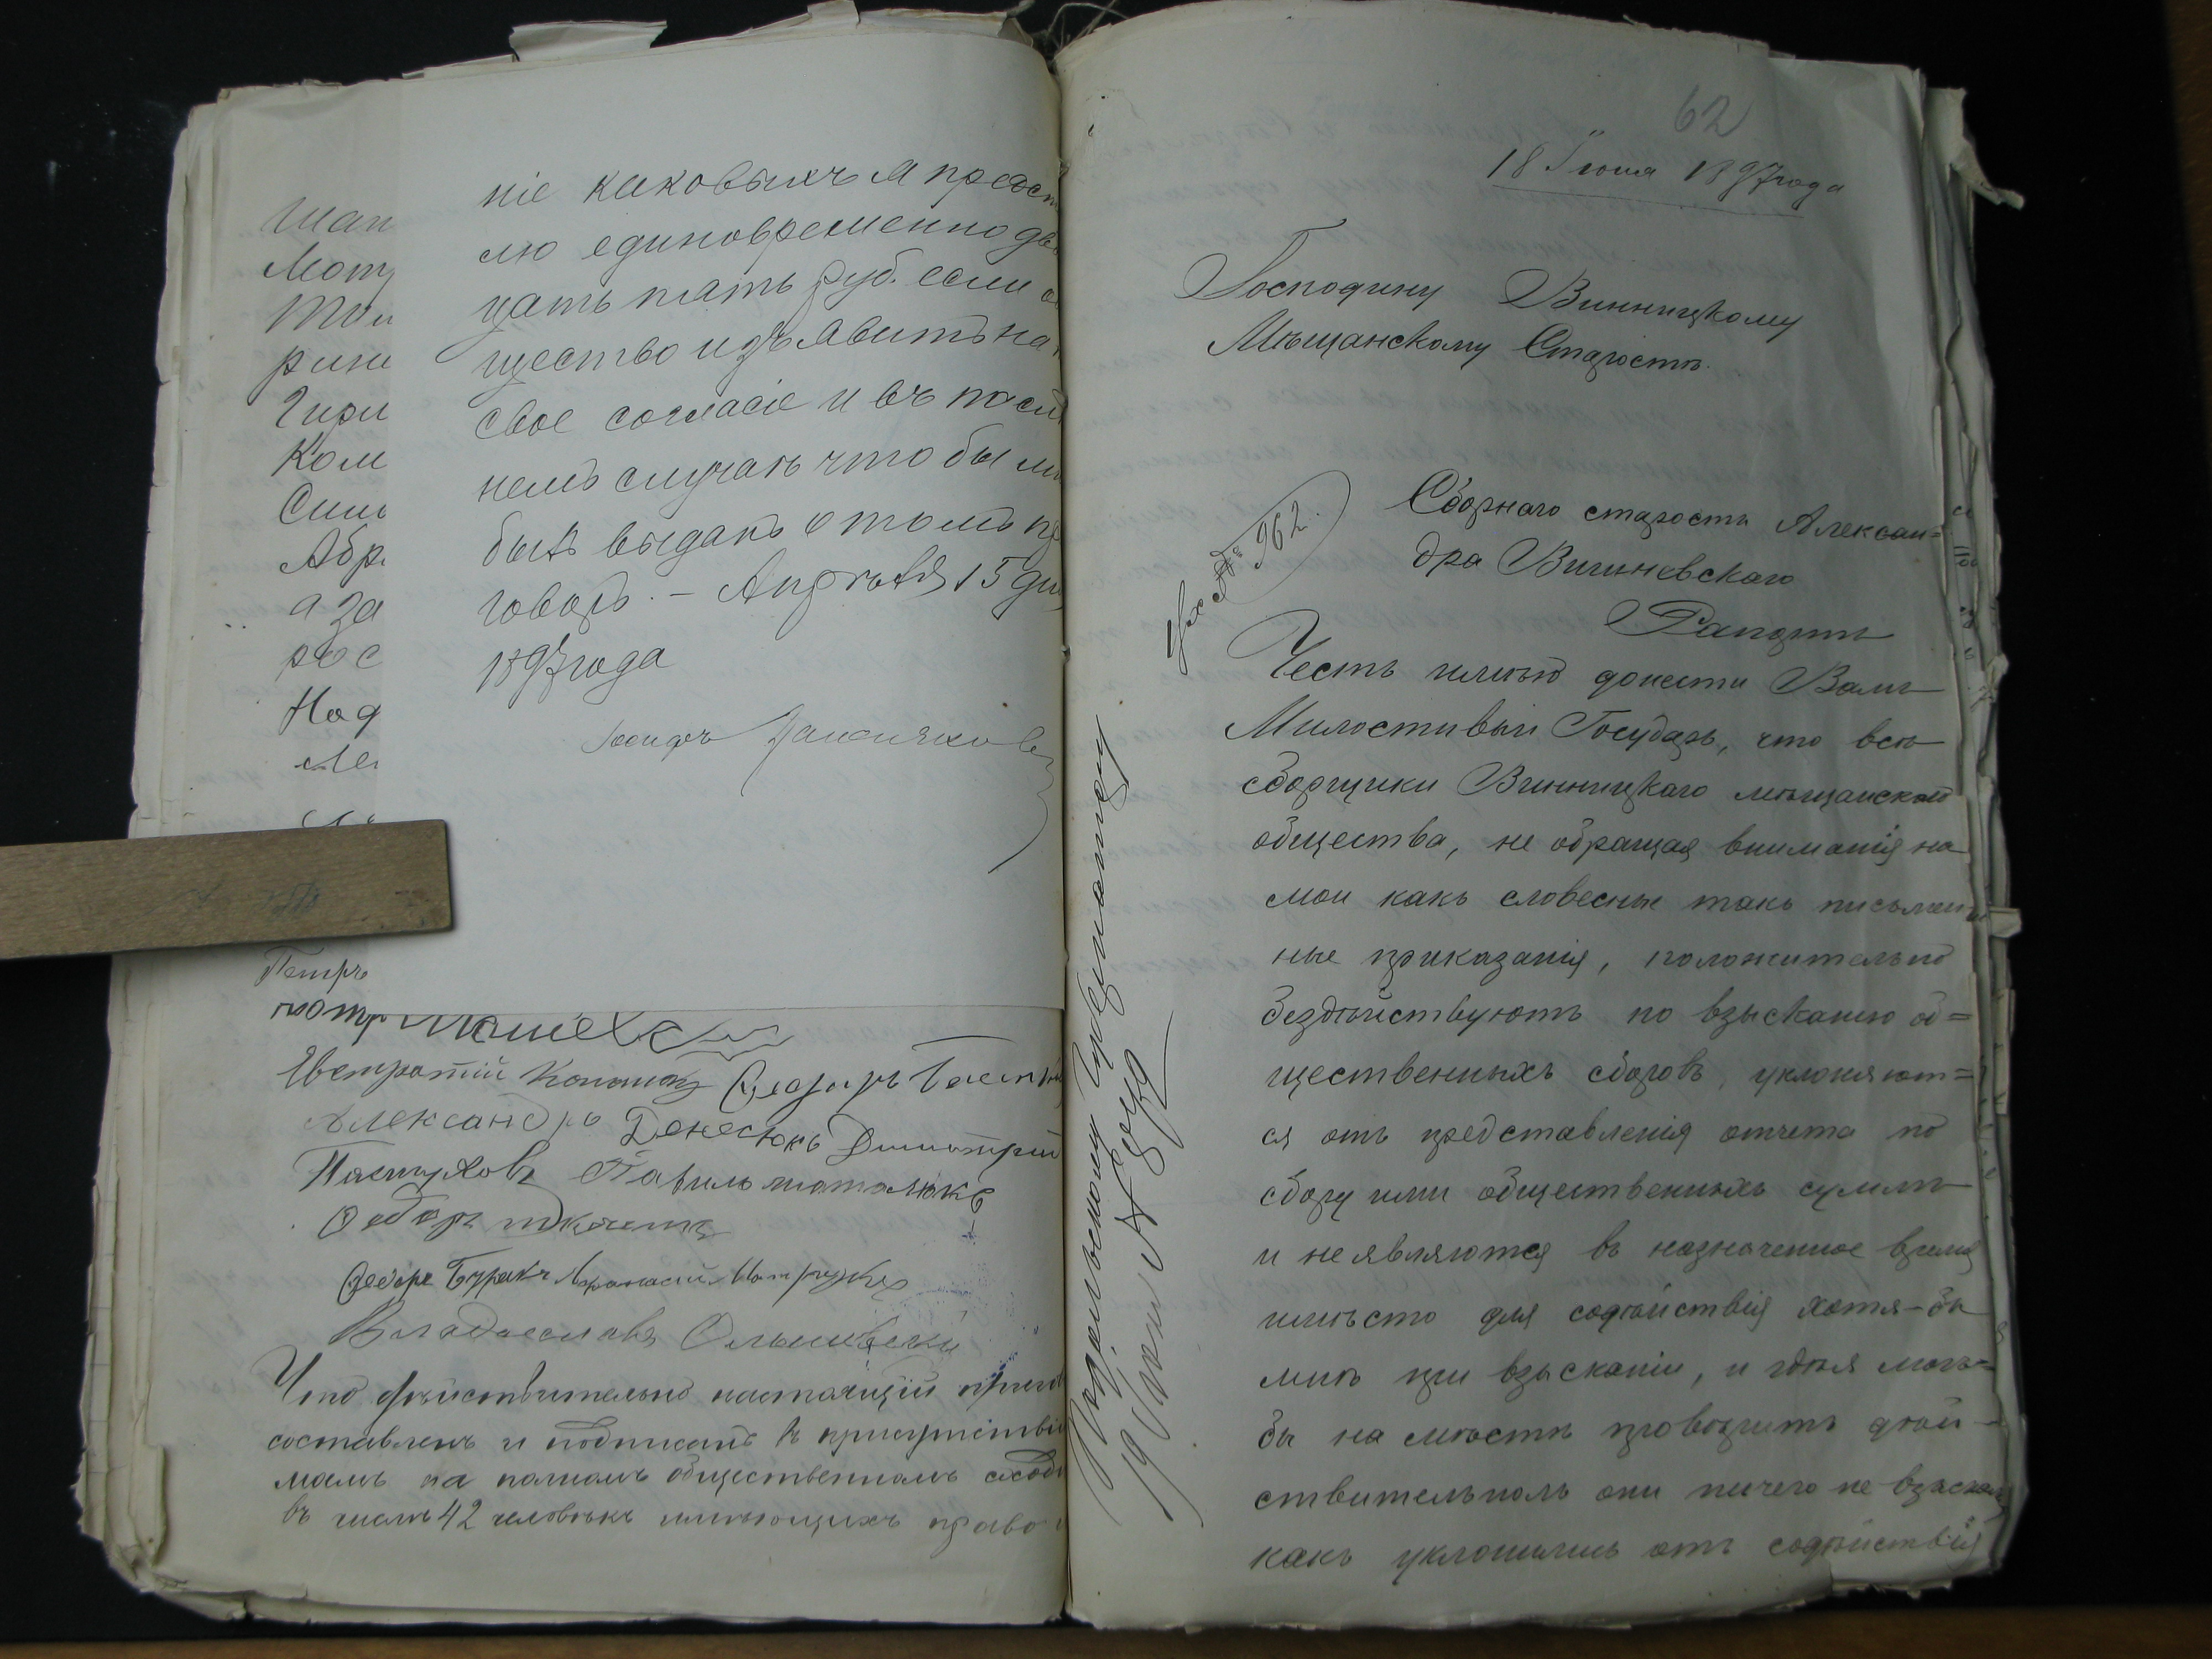 ніе каковыхъ я предст
лю единовременно два
цать пять руб. если о
щество изъявитъ на
свое согласіе и въ посл
немъ случаѣ что бы м
былъ выданъ о томъ пр
говоръ. — Апрѣля 15 дня
1897 года
Іосифъ
шан
Мот
рини
Ком
Абр
а за
рос
Над
Петръ
Евстратій Федоръ
Александръ Денесюкъ Димитрій
Пастуховъ Павилъ
Федоръ
Федоръ Буракъ Афанасій
Владиславъ Ольшевски
Что дѣйствительно настоящій приго
составленъ и подписанъ въ присутствіи
моемъ на полномъ общественномъ сходѣ
въ числѣ 42 человѣкъ имѣющихъ право
62
18 Іюня 1897 года
Господину Винницкому
Мѣщанскому Старостѣ.
Сборнаго старосты Алексан=
дра Вишневскаго
Рапортъ
Вх № 962.
Честь имѣю донести Вамъ
Милостивый Государь, что всѣ
сборщики Винницкаго мѣщанскаго
общества, не обращая вниманія на
мои какъ словесные такъ письмен
ные приказанія, положительно
бездѣйствуютъ по взысканію об=
щественныхъ сборовъ, уклоняют=
ся отъ представленія отчета по
сбору ими общественныхъ суммъ
и не являются въ назначенное время
имѣсто для содѣйствія хотя-бы
мнѣ при взысканіи, и гдѣ я могъ-
бы на мѣстѣ провѣрить дѣй-
ствительноль они ничего не взыскали
какъ уклонились отъ содѣйствія
19 Іюня №